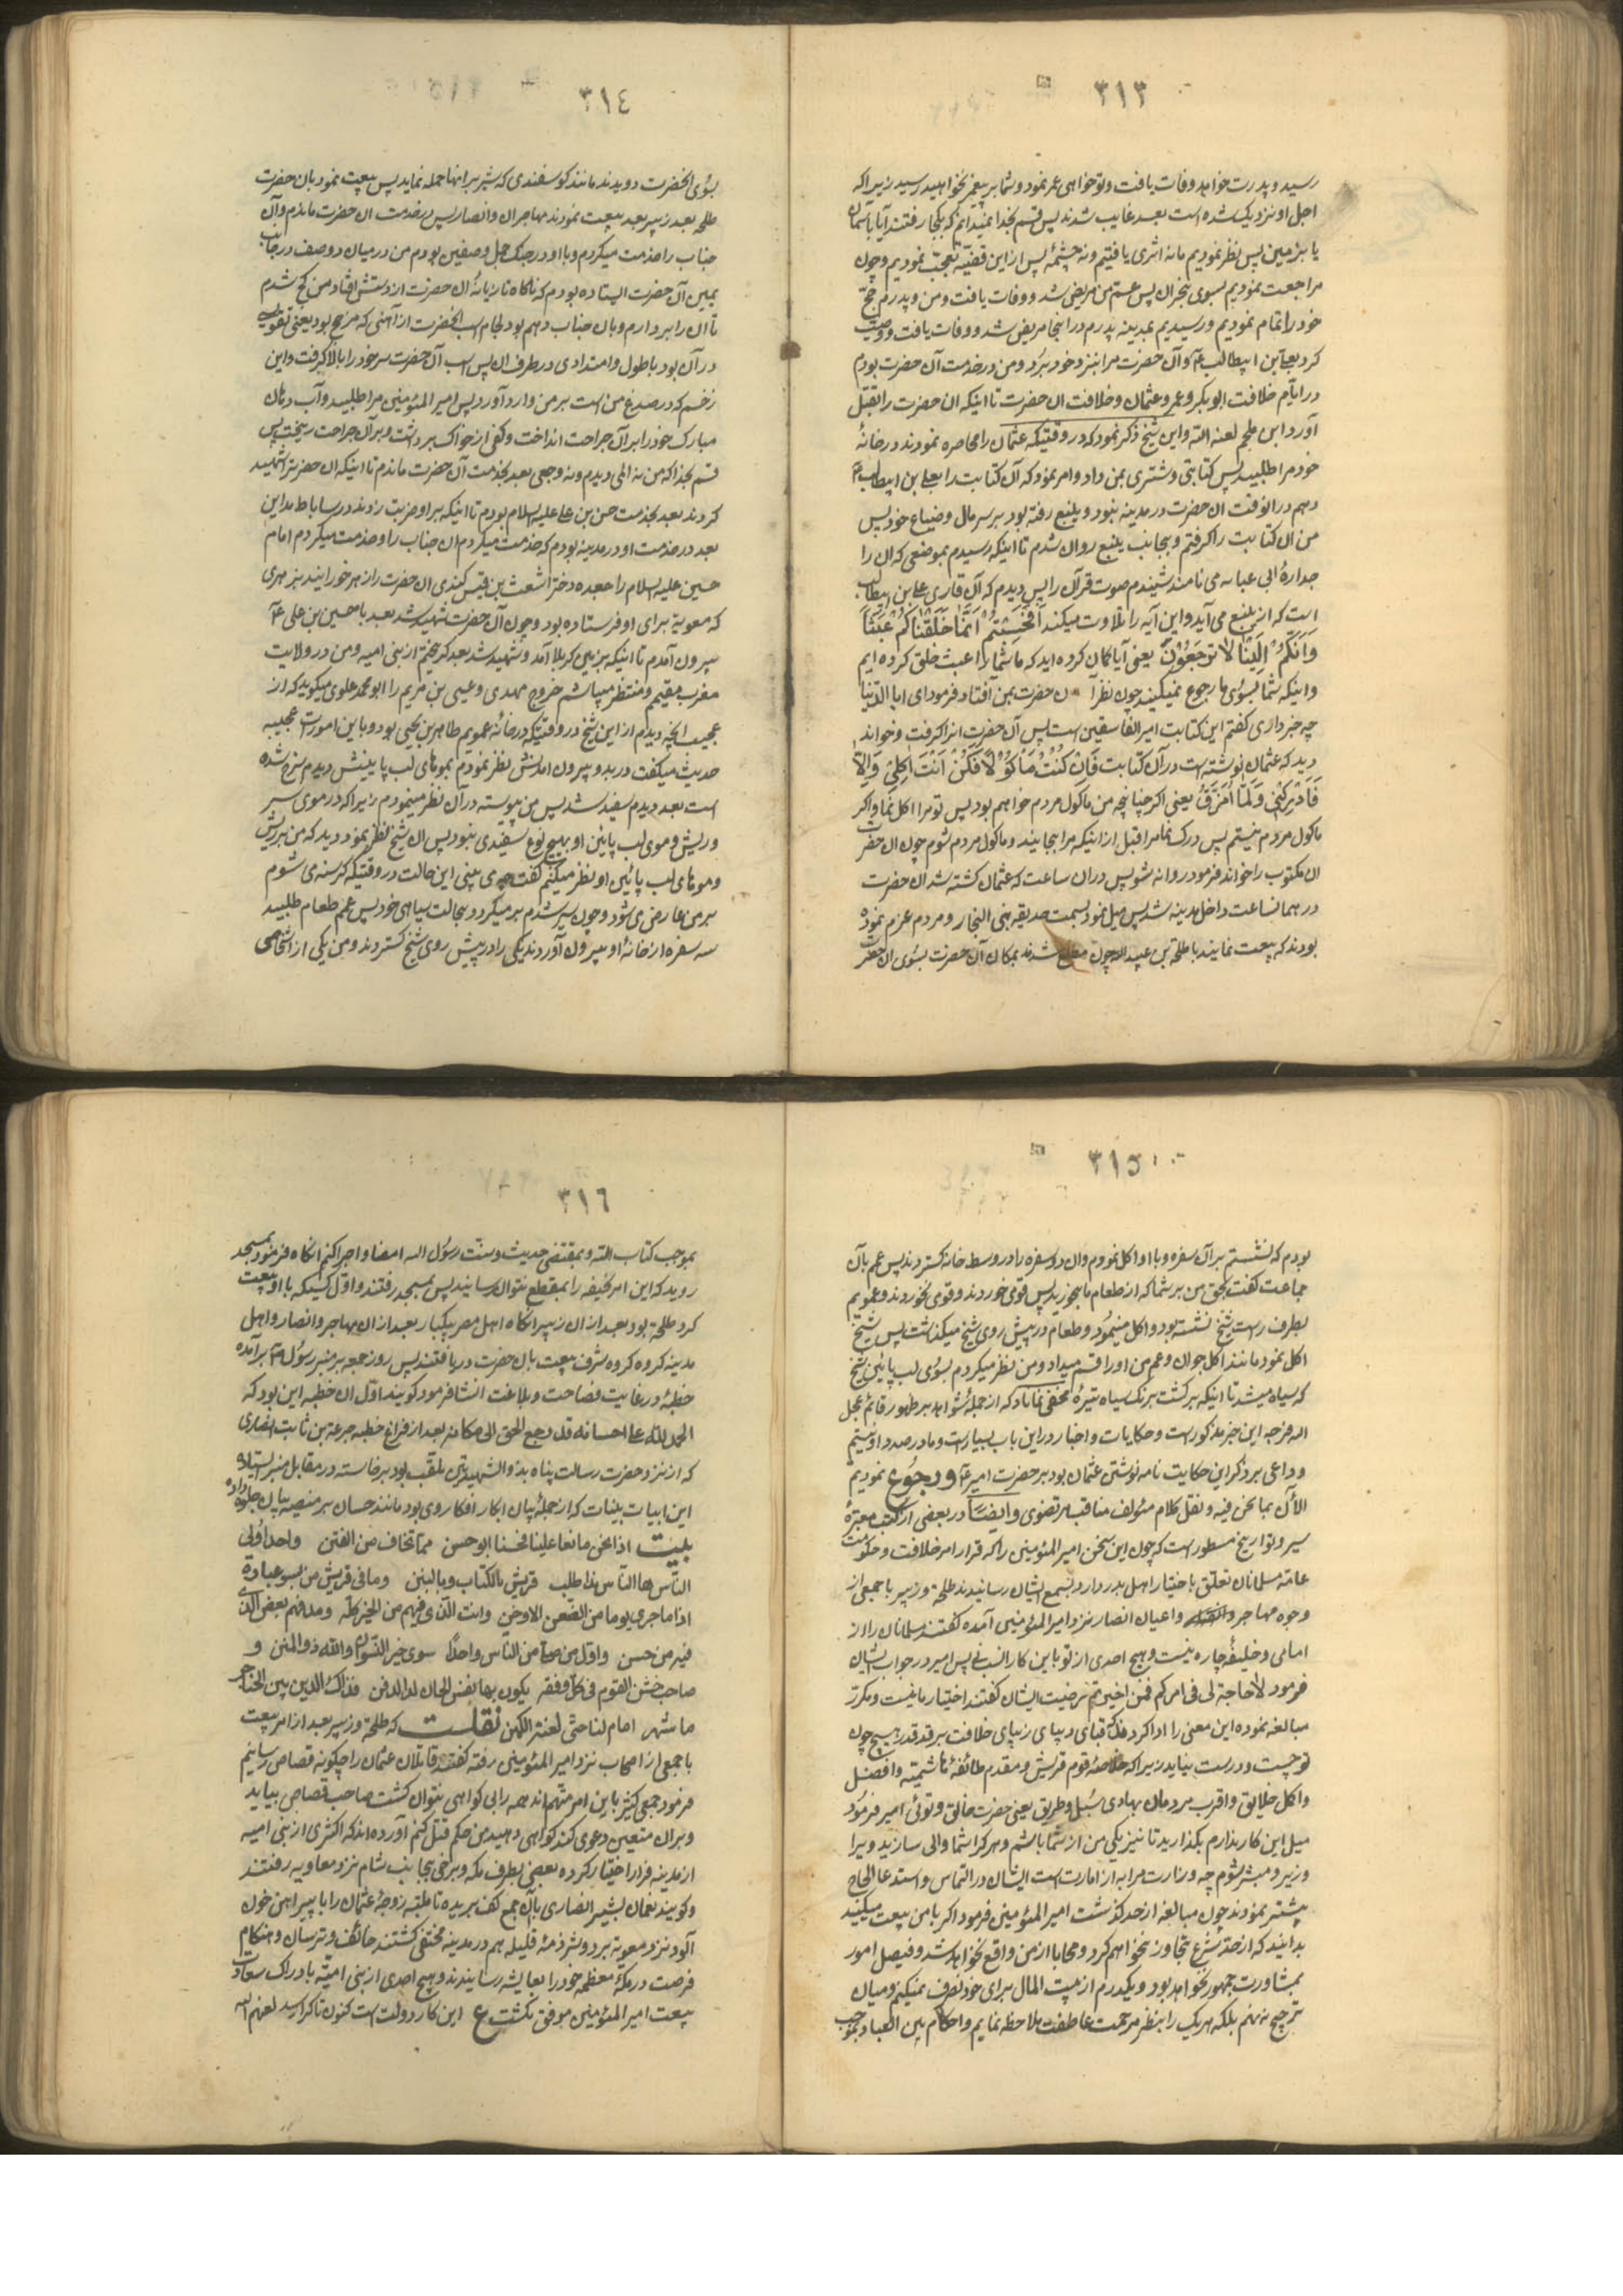 ٣١٣
رسید و پدرت خواهد وفات یافت و تو خواهی عمر نمود و شما بر پیغمبر نخواهید رسید زیرا که
اجل او نزدیک شده است بعد غایب شدند پس قسم بخدا نمیدانم که بکجا رفتند آیا بآسمان
یا بزمین پس نظر نمودیم ما نه اثری یافتیم و نه چشمهٔ پس از این قضیّه تعجّب نمودیم و چون
مراجعت نمودیم بسوی نجران پس عمّ من مریض شد و وفات یافت و من و پدرم حجّ
خود را تمام نمودیم و رسیدیم بمدینه پدرم در اینجا مریض شد و وفات یافت و وصیّت
کرد بعلی بن ابیطالب ع و آن حضرت مرا بنزد خود برد و من در خدمت آن حضرت بودم
در ایّام خلافت ابوبکر و عمر و عثمان و خلافت ان حضرت تا اینکه ان حضرت را بقتل
آورد ابن ملجم لعنه الله و این شیخ ذکر نمود که در وقتیکه عثمان را محاصره نمودند در خانهٔ
خود مرا طلبید پس کتابتی و شتری بمن داد و امر نمود که آن کتابت را بعلی بن ابیطالب ع
دهم در انوقت ان حضرت در مدینه نبود و بینبع رفته بود بر سر مال و ضیاع خود پس
من ان کتابت را گرفتم و بجانب ینبع روان شدم تا اینکه رسیدم بموضعی که ان را
جدارهٔ ابی عبایه می نامند شنیدم صوت قرآن را پس دیدم که آن قاری علی بن ابیطالب
است که از ینبع می آید و این آیه را تلاوت میکند اَفَحَسِبْتُمْ اَنَّمَا خَلَقْنَاکُمْ عَبَثًا
وَاَنَّکُمْ اِلَیْنَا لَا تُرْجَعُوْنَ یعنی آیا گمان کرده اید که ما شما را عبث خلق کرده ایم
و اینکه شما بسوی ما رجوع نمیکنید چون نظر آن حضرت بمن افتاد فرمود ای ابا الدّنیا
چه خبر داری گفتم این کتابت امیر الفاسقین است پس آن حضرت انرا گرفت و خواند
دید که عثمان نوشته است در آن کتابت فَاِنْ کُنْتُ مَاْکُوْلًا فَکُنْ اَنْتَ اٰکِلِیْ وَاِلَّا
فَاَدْرِکْنِیْ وَلَمَّا اُمَزَّقُ یعنی اکر چنانچه من ماکول مردم خواهم بود پس تو مرا اکل نما و اکر
ماکول مردم نیستم پس درک نما مرا قبل از اینکه مرا بجا بیند و ماکول مردم شوم چون ان حضرت
ان مکتوب را خواند فرمود روانه شو پس در ان ساعت که عثمان کشته شد ان حضرت
در همانساعت داخل مدینه شد پس میل نمود بسمت حدیقه بنی النجار و مردم عزم نموده
بودند که بیعت نمایند با طلحة بن عبید الله چون مطلع شدند بمکان آن حضرت بسوی ان حضرت
٣١٤
بسوی انحضرت دویدند مانند کوسفندی که شیر بر انها حمله نماید پس بیعت نمود بان حضرت
طلحه بعد زبیر بعد بیعت نمودند مهاجران و انصار پس در خدمت ان حضرت ماندم و آن
جناب را خدمت میکردم و با او در جنک جمل و صفین بودم من در میان دو صف در جانب
یمین آن حضرت ایستاده بودم که ناکاه تازیانهٔ ان حضرت از دستش افتاد من کج شدم
تا آن را بردارم و بان جناب دهم بود لجام اسب انحضرت از آهنی که مزجج بود یعنی تقویت
در آن بود با طول و امتدادی در طرف ان پس اسب آن حضرت سر خود را بالا گرفت و این
زخم که در صدغ من است بر من وارد آورد پس امیر المؤمنین مرا طلبید و آب دهان
مبارک خود را بر آن جراحت انداخت و کفی از خاک برداشت و بر آن جراحت ریخت پس
قسم بخدا که من نه المی دیدم و نه وجعی بعد بخدمت آن حضرت ماندم تا اینکه ان حضرت را شهید
کردند بعد بخدمت حسن بن علی علیه السلام بودم تا اینکه بر او ضربت زدند در ساباط مداین
بعد در خدمت او در مدینه بودم که خدمت میکردم ان جناب را و خدمت میکردم امام
حسین علیه السلام را جعده دختر اشعث بن قیس کندی ان حضرت را زهر خورانید بزهری
که معویه برای او فرستاده بود و چون آن حضرت شهید شد بعد با حسین بن علی ع
بیرون آمدم تا اینکه بزمین کربلا آمد و شهید شد بعد کریختم از بنی امیه و من در ولایت
مغرب مقیمم و منتظر میباشم خروج مهدی و عیسی بن مریم را ابو محمد علوی میکوید که از
عجیب انچه دیدم از این شیخ در وقتیکه در خانهٔ عمویم طاهر بن یحیی بود و باین امورات عجیبه
حدیث میکفت در بدو بیرون امدنش نظر نمودم بموهای لب پایینش دیدم سرخ شده
است بعد دیدم سفید شد پس من پیوسته در آن نظر مینمودم زیرا که در موی سر
و ریش و موی لب پائین او بهیچ نوع سفیدی نبود پس ان شیخ نظر نمود دید که من بریش
و موهای لب پائین او نظر میکنم کفت می بینی این حالت در وقتیکه کرسنه می شوم
بر من عارض می شود و چون سیر شدم بر میکردد بحالت سیاهی خود پس عمم طعام طلبید
سه سفره از خانهٔ او بیرون آوردند یکی را در پیش روی شیخ کستردند و من یکی از اشخاصی
٣١٥
بودم که نشستم بر آن سفره و با او اکل نمودم و ان دو سفره را در وسط خانه کستردند پس عمم بآن
جماعت کفت بحق من بر شما که از طعام ما بخورید پس قومی خوردند و قومی نخوردند و عمویم
بطرف راست شیخ نشسته بود و اکل مینمود و طعام در پیش روی شیخ میکذاشت پس شیخ
اکل نمود مانند اکل جوان و عمم من او را قسم میداد و من نظر میکردم بسوی لب پائین شیخ
که سیاه میشد تا اینکه برکشت برنک سیاه تیرهٔ مخفی نماناد که از جملهٔ شواهد بر ظهور قائم عجل
الله فرجه این خبر مذکور است و حکایات و اخبار در این باب بسیار است و ما در صدد او نیستیم
و داعی بر ذکر این حکایت نامه نوشتن عثمان بود بر حضرت امیر ع و رجوع نمودیم
الآن بما نحن فیه و نقل کلام مؤلف مناقب مرتضوی و ایضًا در بعضی از کتب معتبرهٔ
سیر و تواریخ مسطور است که چون این سخن امیر المؤمنین را که قرار امر خلافت و حکومت
عامهٔ مسلمانان تعلّق باختیار اهل بدر دارد بسمع ایشان رسانیدند طلحه و زبیر با جمعی از
وجوه مهاجر و اعیان انصار نزد امیر المؤمنین آمده کفتند مسلمانان را از
امامی و خلیفهٔ چاره نیست و هیچ احدی از تو باین کار انسب نی پس امیر در جواب ایشان
فرمود لا حاجة لی فی امرکم فمن اخترتم رضیت ایشان کفتند اختیار ما نیست و مکرر
مبالغه نموده این معنی را ادا کردند که قبای دیبای زیبای خلافت بر قد قدر هیچ چون
تو چست و درست نیاید زیرا که خلاصهٔ قوم قریش و مقدم طائفهٔ هاشمیّه و افضل
و اکمل خلایق و اقرب مردمان بهادی سُبل و طریق یعنی حضرت خالق و توئی امیر فرمود
میل این کار ندارم بکذارید تا نیز یکی من از شما باشم و هر کرا شما والی سازید ویرا
وزیر و مشیر شوم چه وزارت مرا به از امارت است ایشان در التماس و استدعا الحاح
بیشتر نمودند چون مبالغه از حد کذشت امیر المؤمنین فرمود اکر با من بیعت میکنید
بدانید که از حد شرع تجاوز نخواهم کرد و محابا از من واقع نخواهد شد و فیصل امور
بمشاورت جمهور نخواهد بود و یکدرم از بیت المال برای خود تصرف نمیکنم و میان
ترجیح نه نهم بلکه هر یک را بنظر مرحمت عاطفت ملاحظه نمایم و احکام بین العباد بموجب
٣١٦
بموجب کتاب الله و بمقتضی حدیث و سنّت رسول الله امضا و اجرا کنم انکاه فرمود بمسجد
روید که این امر خفیه را بمقطع نتوان رسانید پس بمسجد رفتند و اوّل کسیکه با او بیعت
کرد طلحة بود بعد از ان زبیر انکاه اهل مصر بیکبار بعد از ان مهاجر و انصار و اهل
مدینه کروه کروه شرف بیعت بان حضرت دریافتند پس روز جمعه بر منبر رسول ص برآمده
خطبهٔ در غایت فصاحت و بلاغت انشا فرمود کویند اوّل ان خطبه این بود که
الحمد لله علی احسانه قد رجع الحق الی مکانه بعد از فراغ خطبه خزیمة بن ثابت انصاری
که از نزد حضرت رسالت پناه بذو الشهیدتین ملقب بود برخاسته در مقابل منبر ایستاده
این ابیات بینات که از جملهٔ بیان ابکار افکار وی بود مانند حسان بر منصه بیان جلوه داد
بلیت اذا نحن بایعنا علینا فحسبنا ابو حسن مما نخاف من الفتن واحد اولی
النّاس بالنّاس هذا طلب قریش بالکتاب و بالسنن وما فی قریش من یسو غباره
اذا ما جری یوما من الضمر الاوحن وانت الّذی فیهم من الخیر کلّه وما فیهم بعض الّذی
فیه من حسن واوّل من صلّی من النّاس واحدًا سوی خیر النّسوان والله ذو المنن و
صاحب خشن القوم فی کل وقفه یکون بها نفس الجبان لدا الدفن فذاک الّذین بین الحناجر
ما شهر امام لنا حتی لغنته الکفن نقلست که طلحة و زبیر بعد از امر بیعت
با جمعی از اصحاب نزد امیر المؤمنین رفته کفتند قاتلان عثمان را چکونه قصاص رسانیم
فرمود جمعی کثیر باین امر متّهم اند همه را بی کواهی نتوان کشت صاحب قصاص بیاید
و بر ان متعین دعوی کند کواهی دهید من حکم قتل کنم آورده اند که اکثری از بنی امیه
از مدینه فرار اختیار کرده بعضی بطرف مکه و برخی بجانب شام نزد معاویه رفتند
و کویند نعمان بشیر انصاری بآن جمع کف بریده نائله زوجهٔ عثمان را با پیراهن خون
آلود نزد معویه برد و شرذمهٔ قلیله هم در مدینه مختفی کشتند خائف و ترسان و هنکام
فرصت در مکهٔ معظمه خود را بعایشه رسانیدند و هیچ احدی از بنی امیّه بادراک سعادت
بیعت امیر المؤمنین موفق نکشت ع این کار دولت است کنون تا کرا رسد لعنهم الله